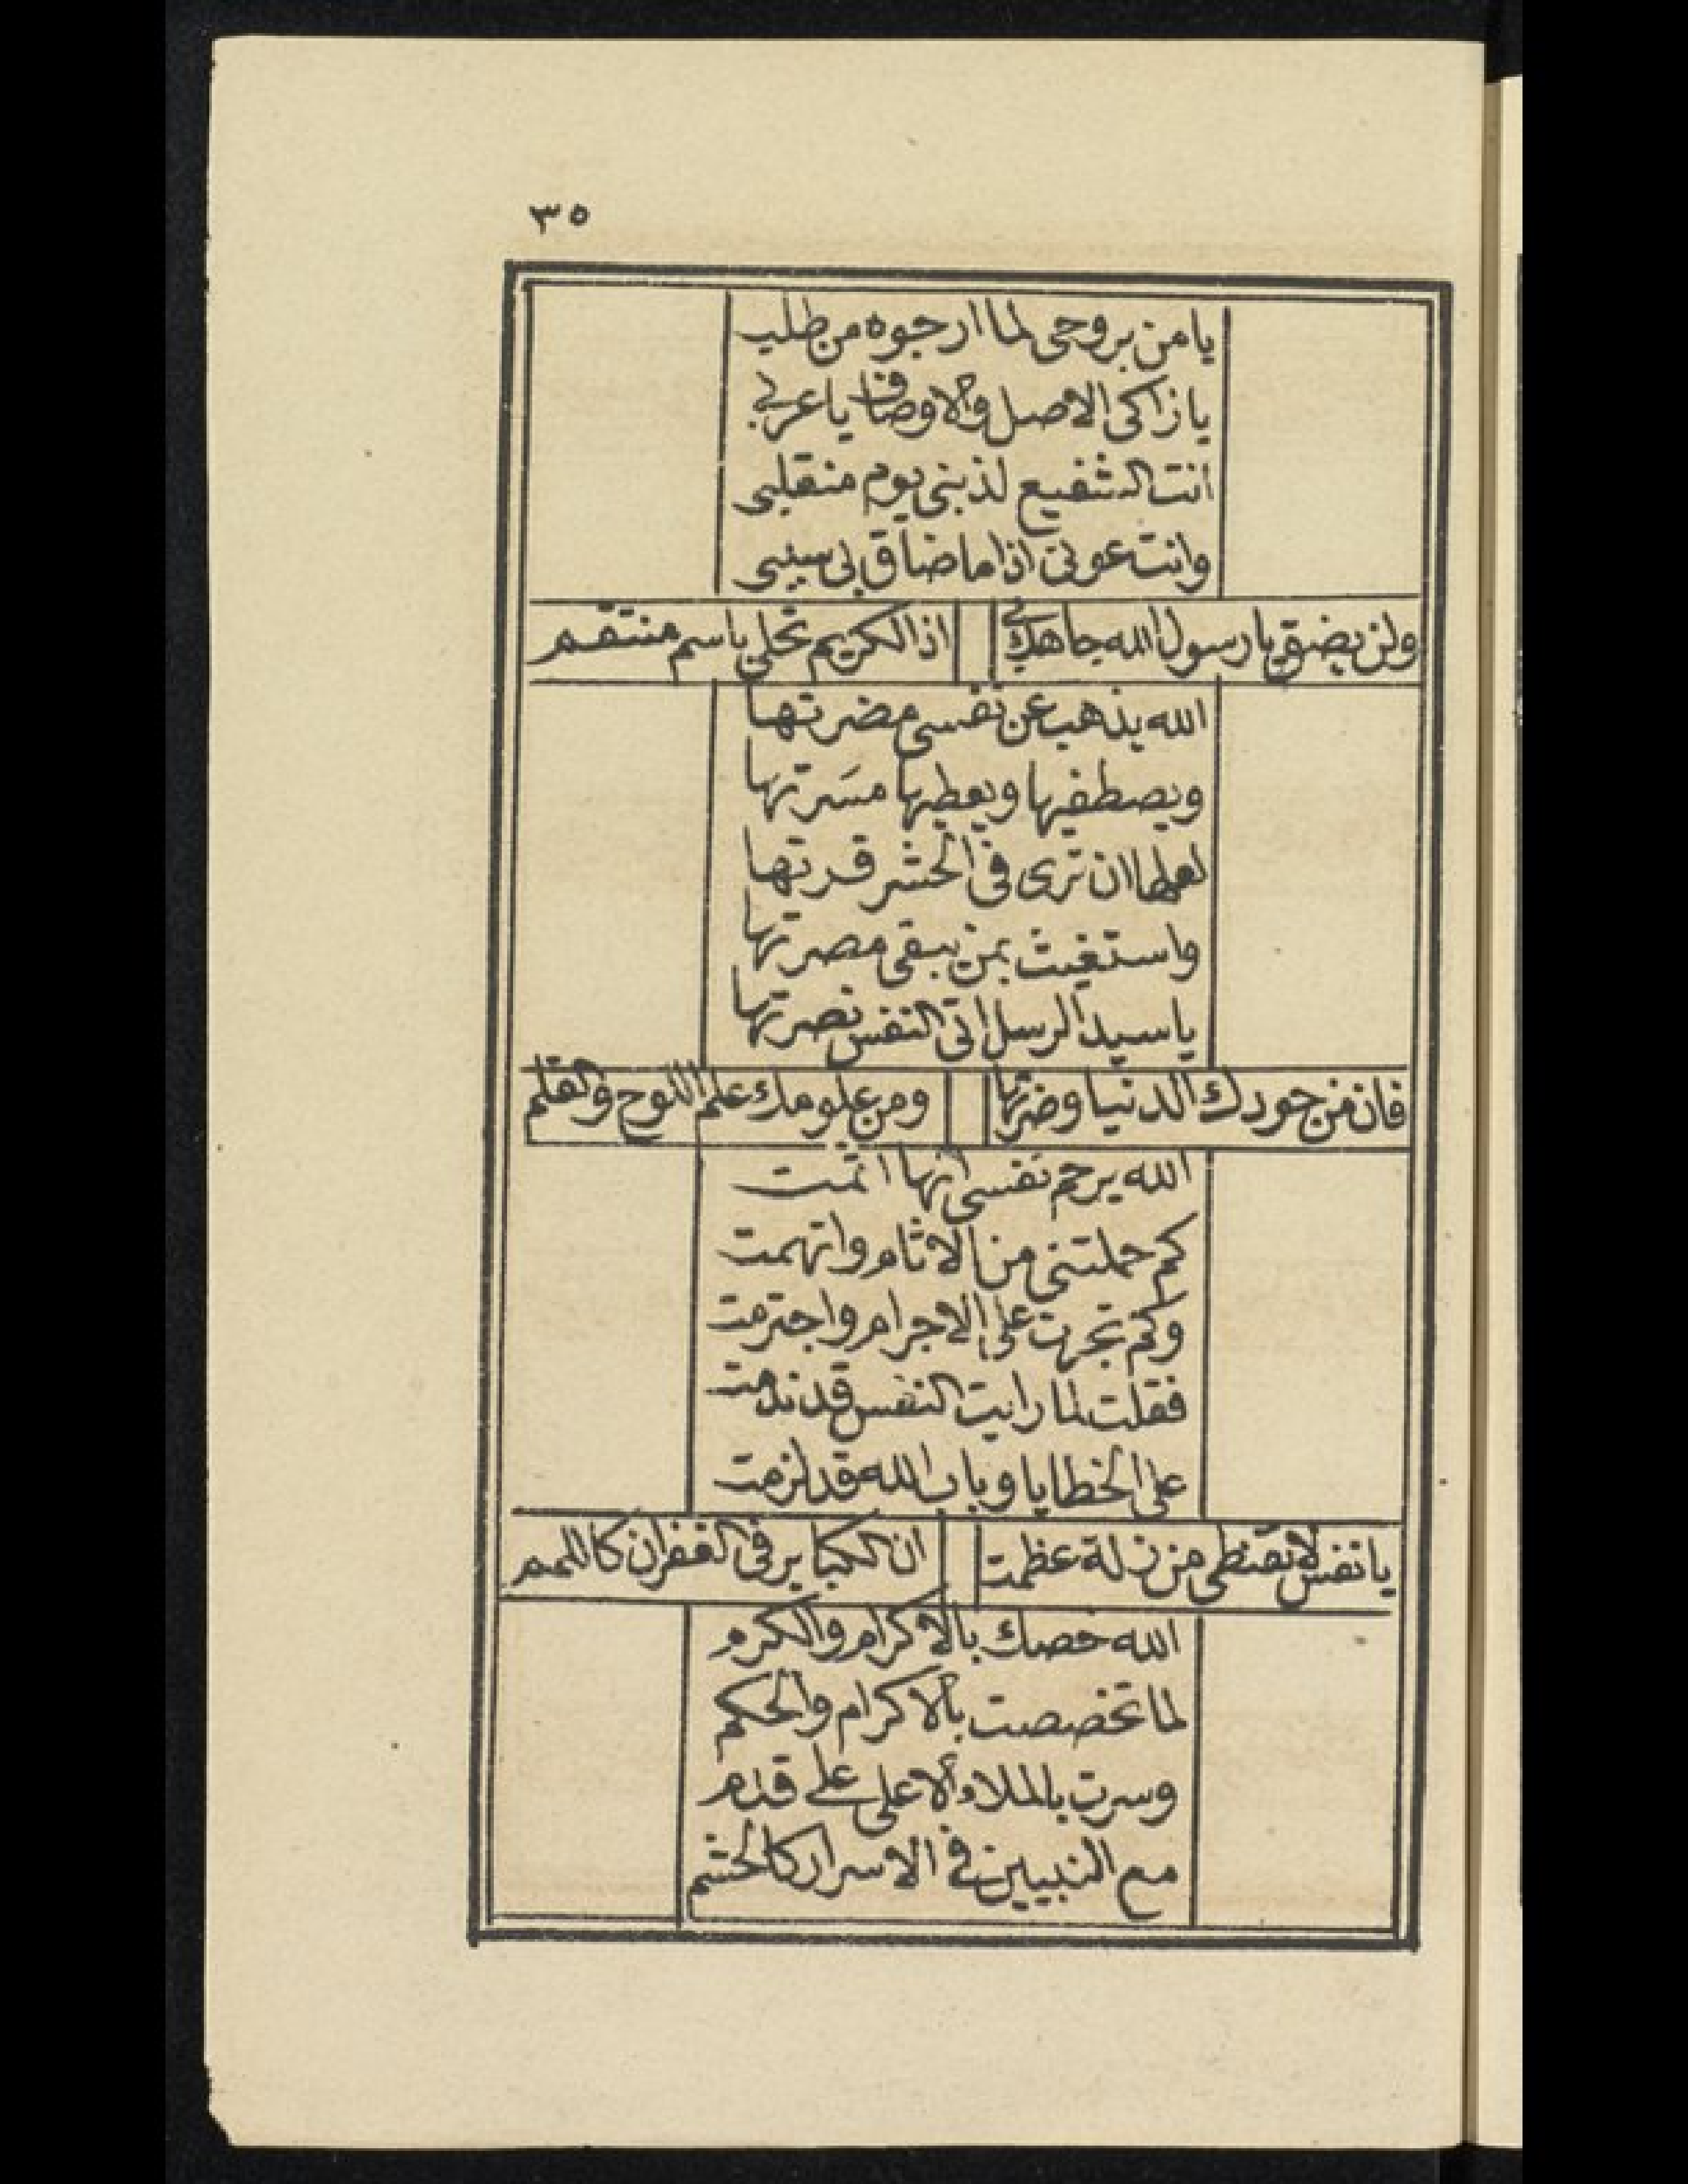 ٣٥
يا من بروحى لما ارجوه من طلب
يا زاكى الاصل والاوصاف يا عربي
انت الشفيع لذنبى يوم منقلبى
وانت عونى اذا ما ضاق بى سببى
ولن يضق يا رسول الله جاهك بي اذا الكريم تحلى باسم منتقم
الله يذهب عن نفسى مضرتها
ويصطفيها ويعطيها مسَرتها
لعلها ان ترى فى الحشر قرتها
واستغيث بمن يبقى مصرتها
يا سيد الرسل انى النفس نصرتها
فان من جودك الدنيا وضرتها ومن علومك علم اللوح والقلم
الله يرحم نفسى انها اتمت
كم حملتنى من الاثام واتهمت
وكم تجرت على الاجرام واجترمت
فقلت لما رايت النفس قد ندمت
على الخطايا وباب الله قد لزمت
يا نفس لا تقنطى من زلة عظمت ان الكباير فى الغفران كاللمم
الله خصك بالاكرام والكرم
لما تخصصت بالاكرام والحكم
وسرت بالملاء الاعلى على قدم
مع النبيين في الاسرار كالحشم